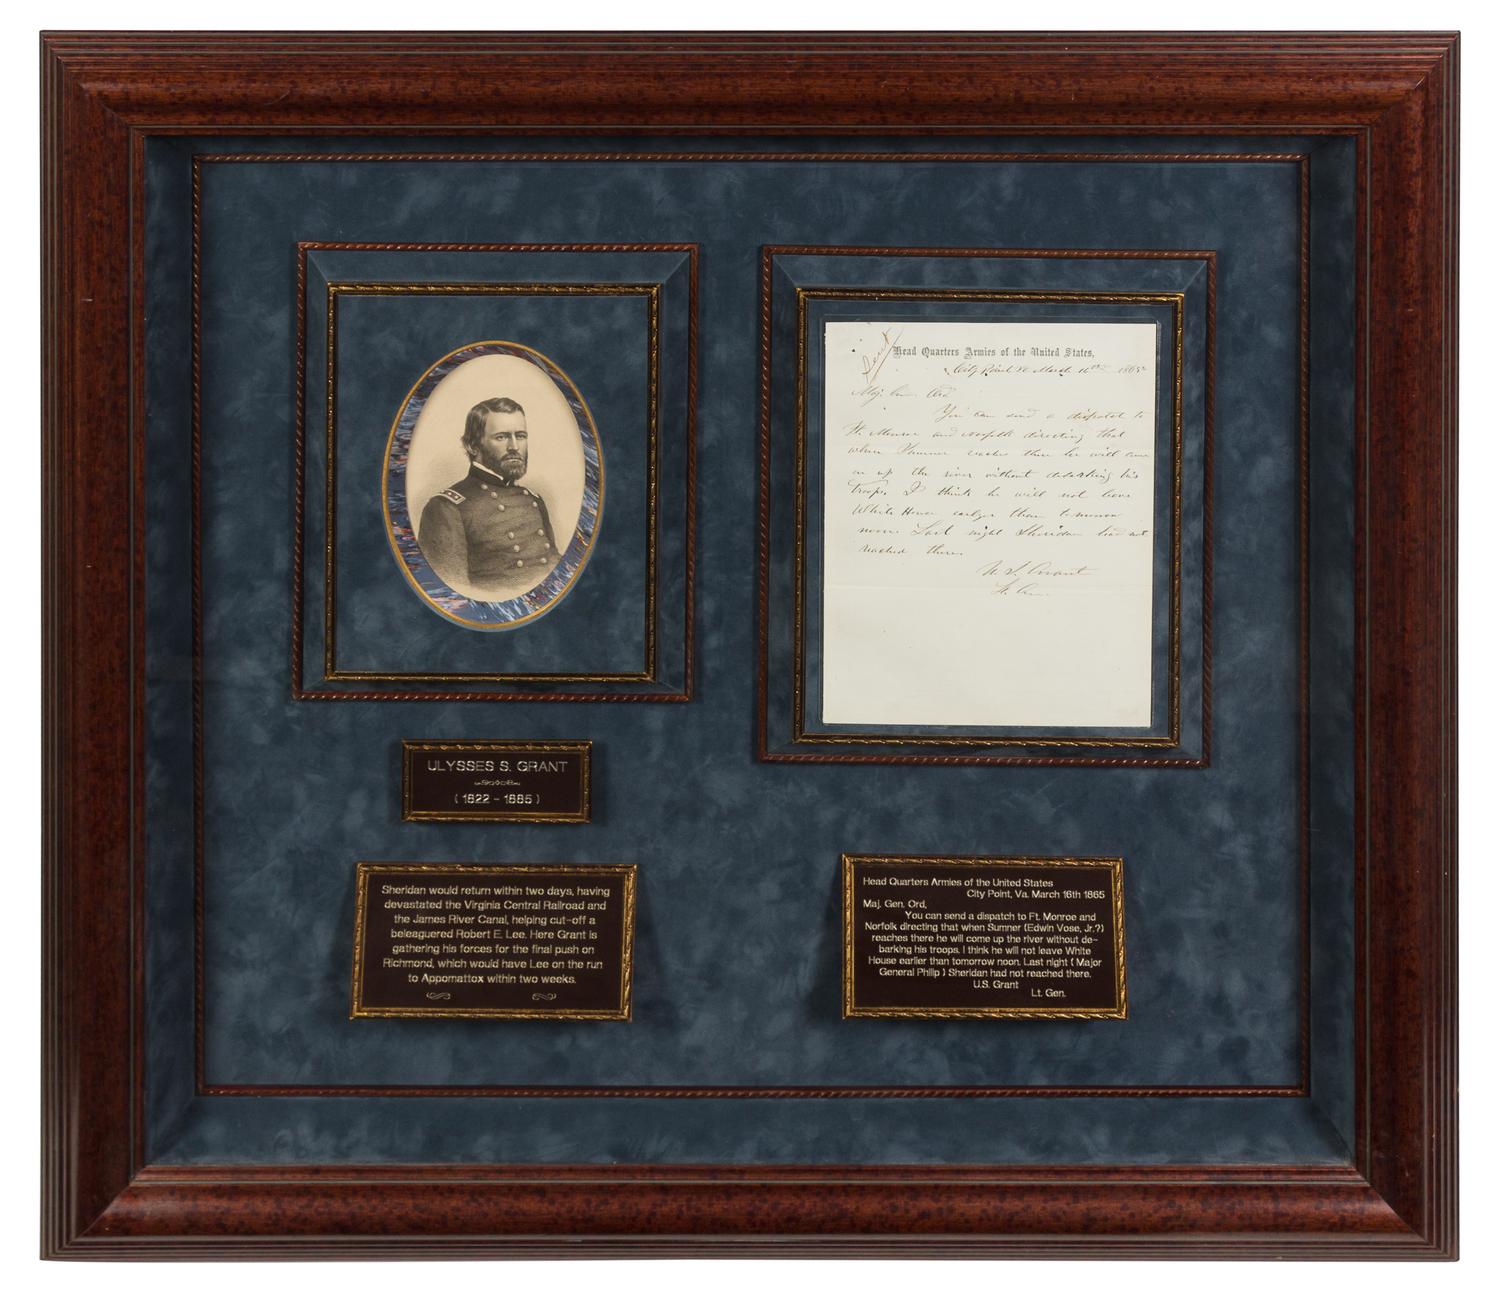 Sent
Head Quarters Armies of the United States,
City Point Va. March 16th 1865
Maj. Gen. Ord
You can send a dispatch to
Ft. Monroe and Norfolk directing that
when Sumner reaches there he will come
on up the river without debarking his
troops. I think he will not leave
White House earlyer than to-morrow
noon. Last night Sheridan had not
reached there.
U. S. Grant
Lt. Gen.
ULYSSES S. GRANT
( 1822 - 1885 )
Sheridan would return within two days, having
devastated the Virginia Central Railroad and
the James River Canal, helping cut-off a
beleaguered Robert E. Lee. Here Grant is
gathering his forces for the final push on
Richmond, which would have Lee on the run
to Appomattox within two weeks.
Head Quarters Armies of the United States
City Point, Va. March 16th 1865
Maj. Gen. Ord,
You can send a dispatch to Ft. Monroe and
Norfolk directing that when Sumner (Edwin Vose, Jr.?)
reaches there he will come up the river without de-
barking his troops. I think he will not leave White
House earlier than tomorrow noon. Last night ( Major
General Philip ) Sheridan had not reached there.
U.S. Grant
Lt. Gen.